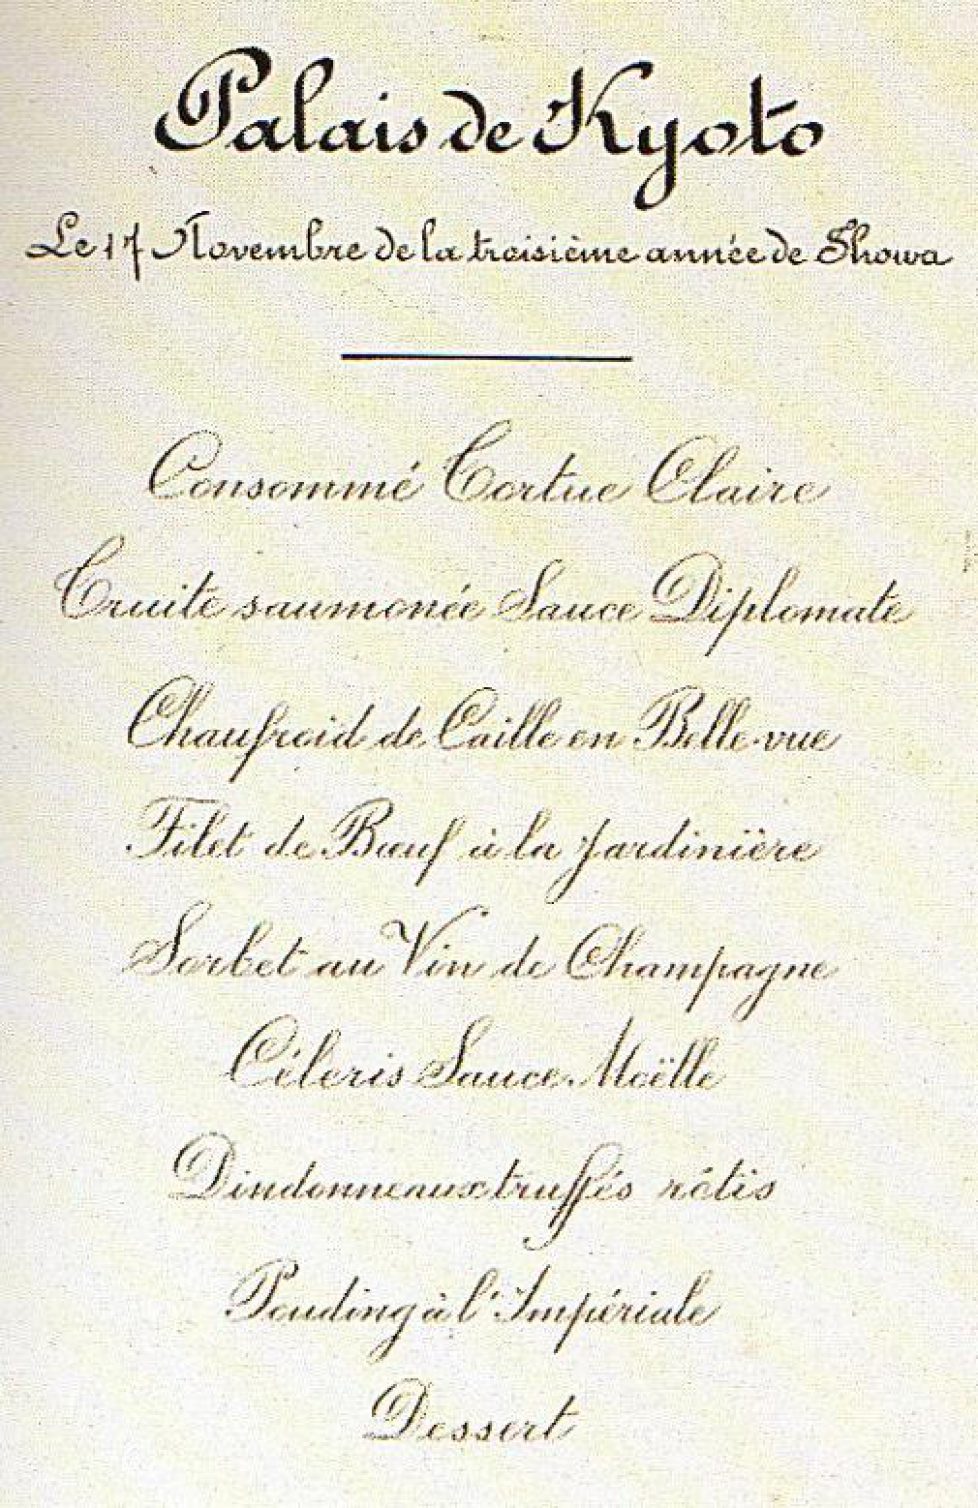 Palais de Kyoto
Le 17 Novembre de la troisième année de Showa
Consommé Tortue Claire
Truite saumonée Sauce Diplomate
Chaufroid de Caille en Belle-vue
Filet de Bœuf à la Jardinière
Sorbet au Vin de Champagne
Céleris Sauce Moëlle
Dindonneaux truffés rôtis
Pouding à l'Impériale
Dessert